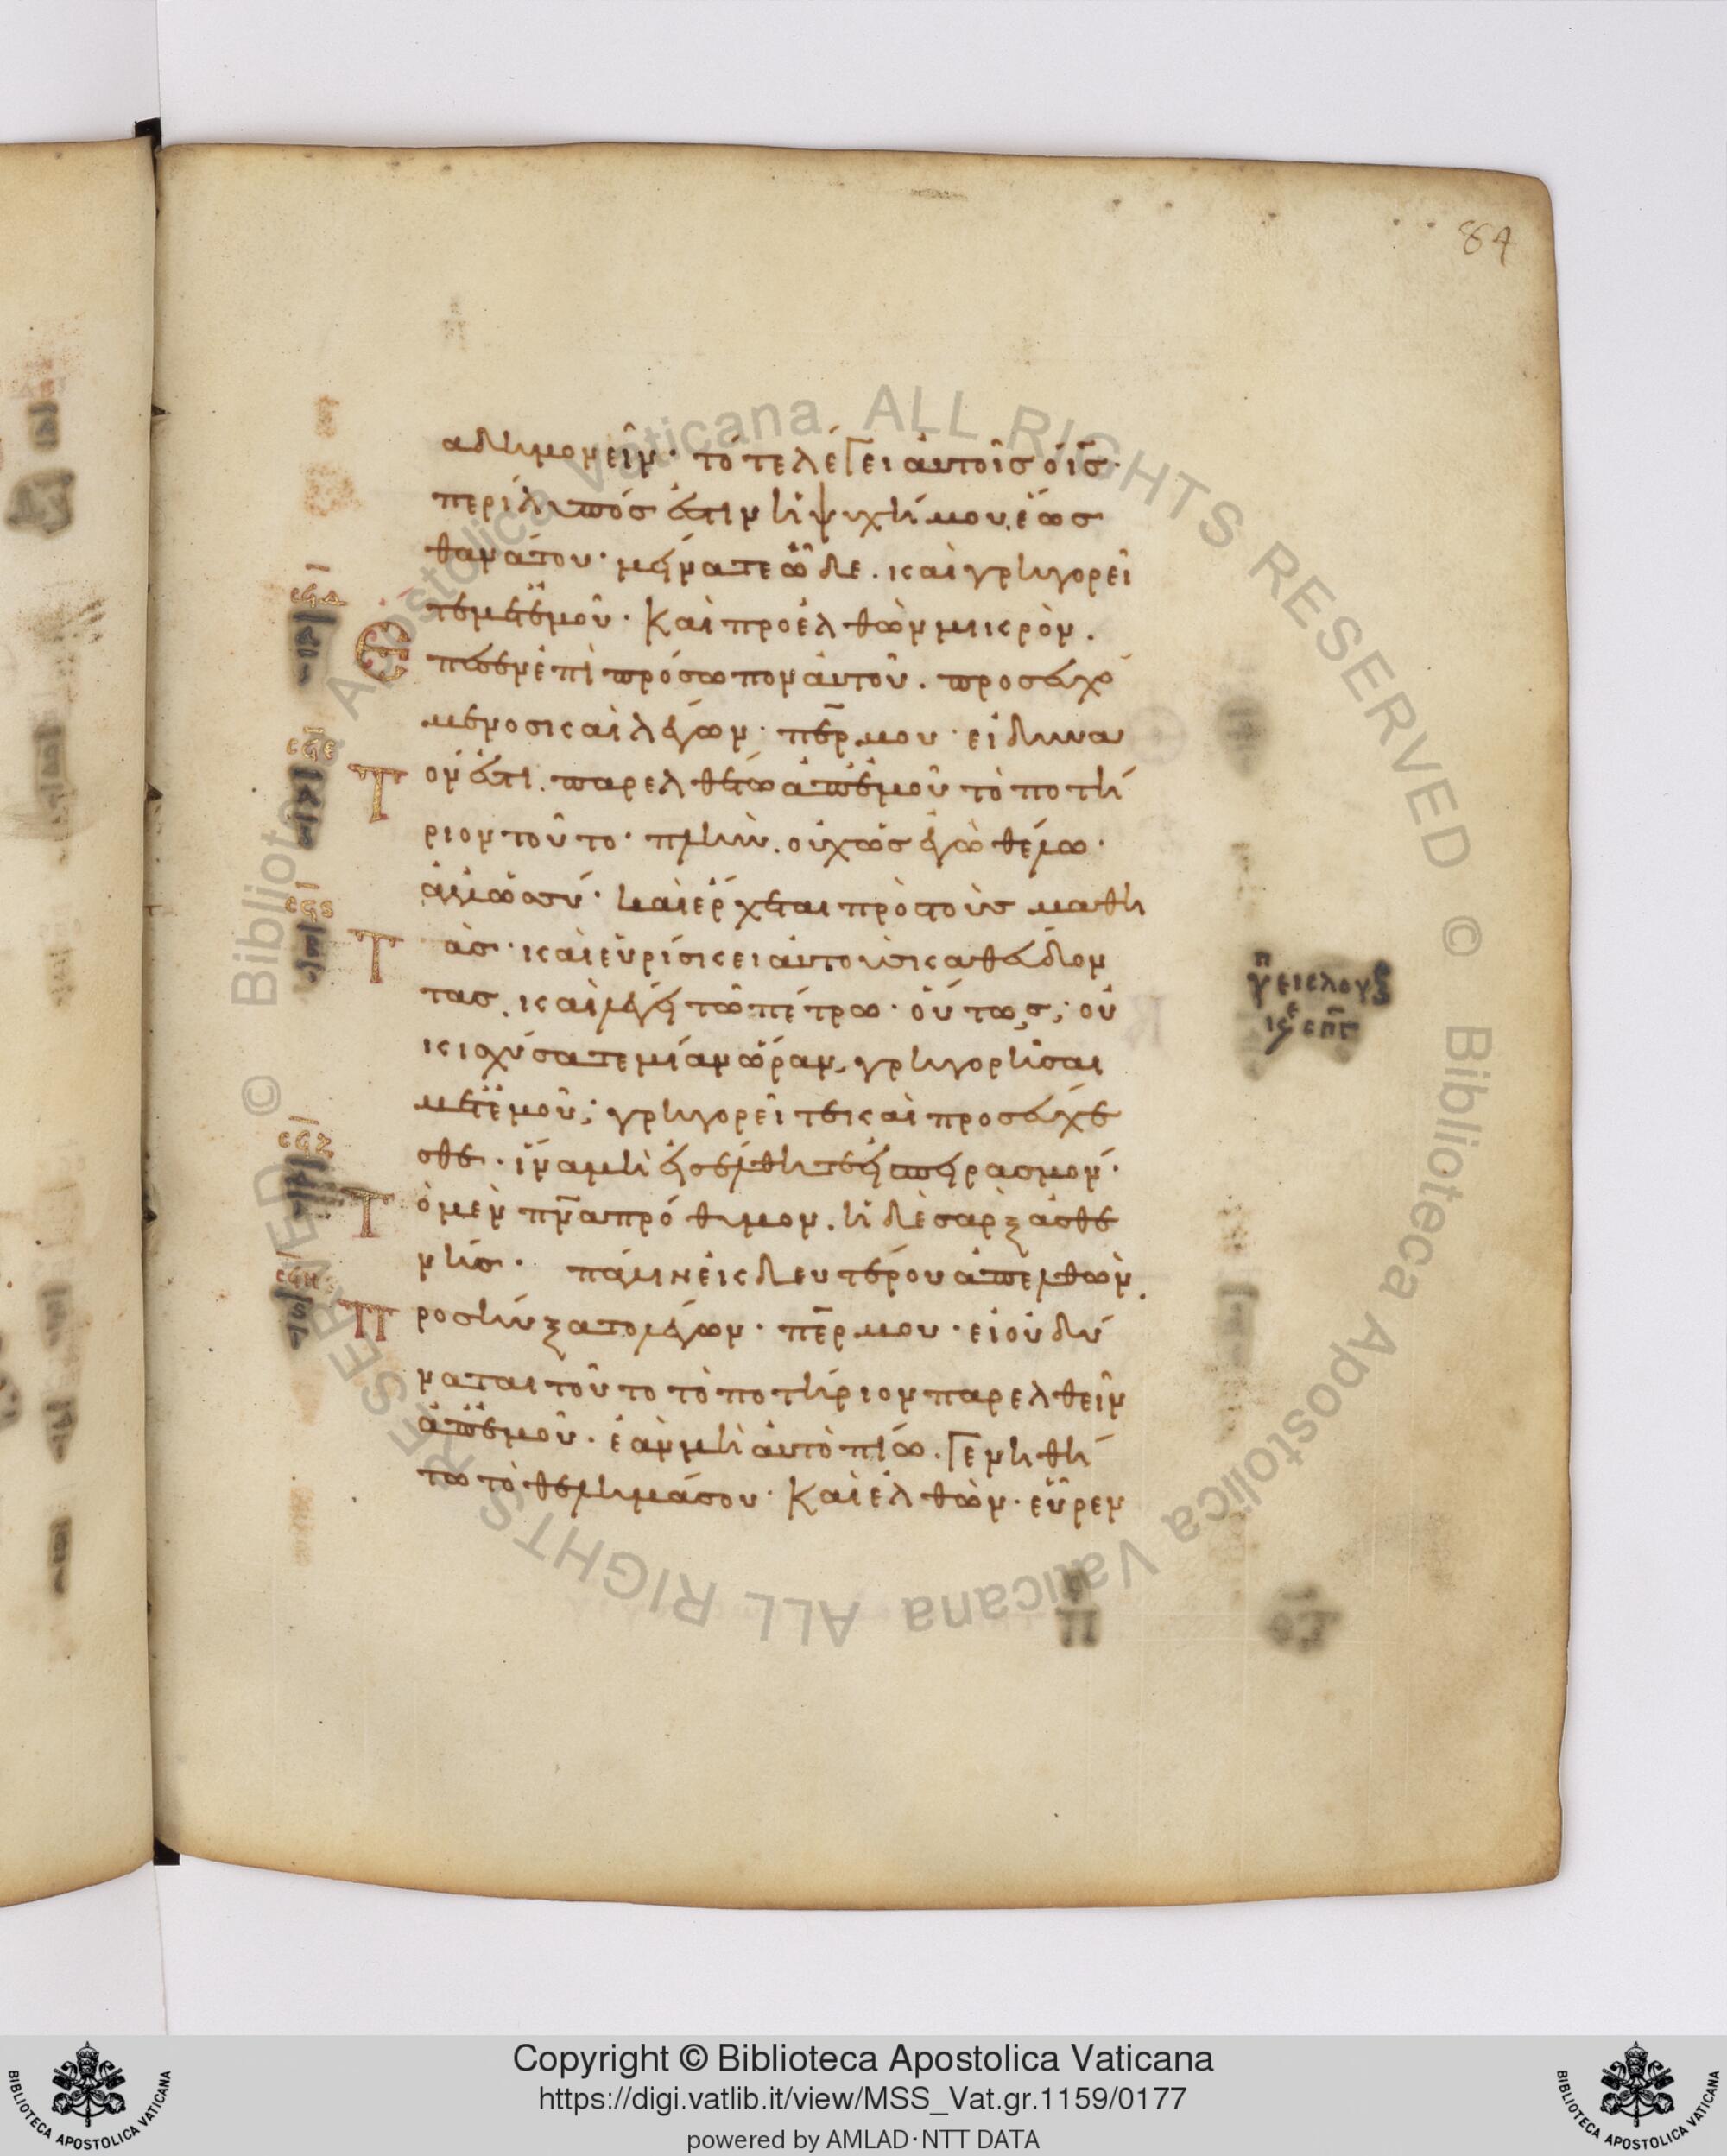 84
αδημονεῖν· τότε λέγει αὐτοῖς ὁ ις̄·
περίλυπός ἐστιν ἡ ψυχή μου, ἕως
θανάτου· μείνατε ὧδε. καὶ γρηγορεῖ
τε μετ' ἐμοῦ· Καὶ προελθὼν μικρὸν.
Ε πεσεν ἐπὶ πρόσωπον αὐτοῦ. προσευχό
μενος καὶ λέγων· περ̄ μου· εἰ δυνα
Τ ὸν ἐστι. παρελθέτω ἀπ' ἐμοῦ τὸ ποτή
ριον τοῦτο· πλὴν. οὐχ ὡς ἐγὼ θέλω·
ἀλλ' ὡς σύ· Καὶ ἔρχεται πρὸς τοὺς μαθη
Τ ὰς· καὶ εὑρίσκει αὐτοὺς καθεύδον
τας. καὶ λέγει τῶ πέτρω· οὕτως; οὐ
κ ισχύσατε μίαν ὥραν, γρηγορῆσαι
μετ' ἐμοῦ; γρηγορεῖτε καὶ προσεύχε
σθε. ἵνα μὴ εἰσέλθητε εἰς πειρασμόν·
Τ ὸ μὲν πν̄α πρόθυμον. ἡ δὲ σὰρξ ἀσθε
νής· πάλιν ἐκ δευτέρου ἀπελθὼν.
Π ροσηύξατο λέγων· περ̄ μου· εἰ οὐ δύ
ναται τοῦτο τὸ ποτήριον παρελθεῖν
ἀπ' ἐμοῦ· ἐὰν μὴ αὐτὸ πίω. Γενηθή
τω τὸ θέλημά σου· Καὶ ἐλθὼν· εὗρεν
Copyright © Biblioteca Apostolica Vaticana
https://digi.vatlib.it/view/MSS_Vat.gr.1159/0177
powered by AMLAD·NTT DATA
BIBLIOTECA APOSTOLICA VATICANA
BIBLIOTECA APOSTOLICA VATICANA